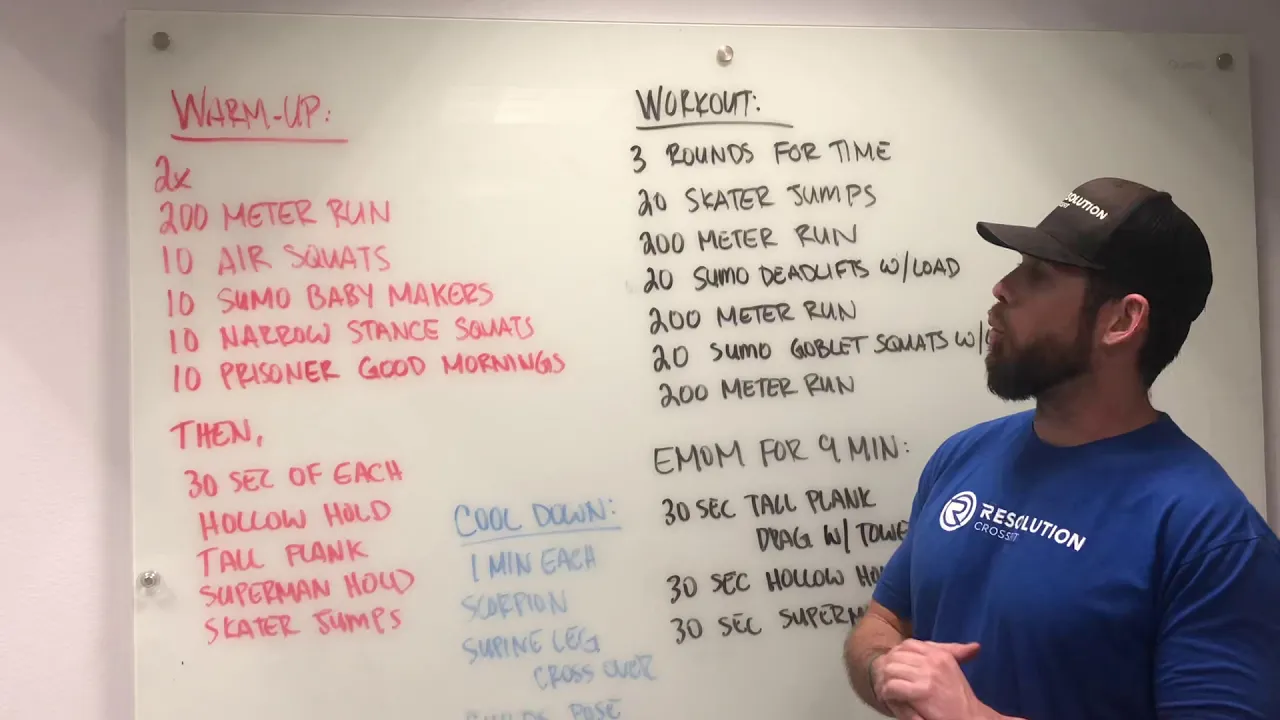 WARM-UP:
2x
200 METER RUN
10 AIR SQUATS
10 SUMO BABY MAKERS
10 NARROW STANCE SQUATS
10 PRISONER GOOD MORNINGS
THEN,
30 SEC OF EACH
HOLLOW HOLD
TALL PLANK
SUPERMAN HOLD
SKATER JUMPS
COOL DOWN:
1 MIN EACH
SCORPION
SUPINE LEG
CROSS OVER
POSE
WORKOUT:
3 ROUNDS FOR TIME
20 SKATER JUMPS
200 METER RUN
20 SUMO DEADLIFTS W/LOAD
200 METER RUN
20 SUMO GOBLET SQUATS W/
200 METER RUN
EMOM FOR 9 MIN:
30 SEC TALL PLANK
DRAG W/ TOWE
30 SEC HOLLOW HO
30 SEC SUPERM
SOLUTION
RESOLUTION
CROSSFIT